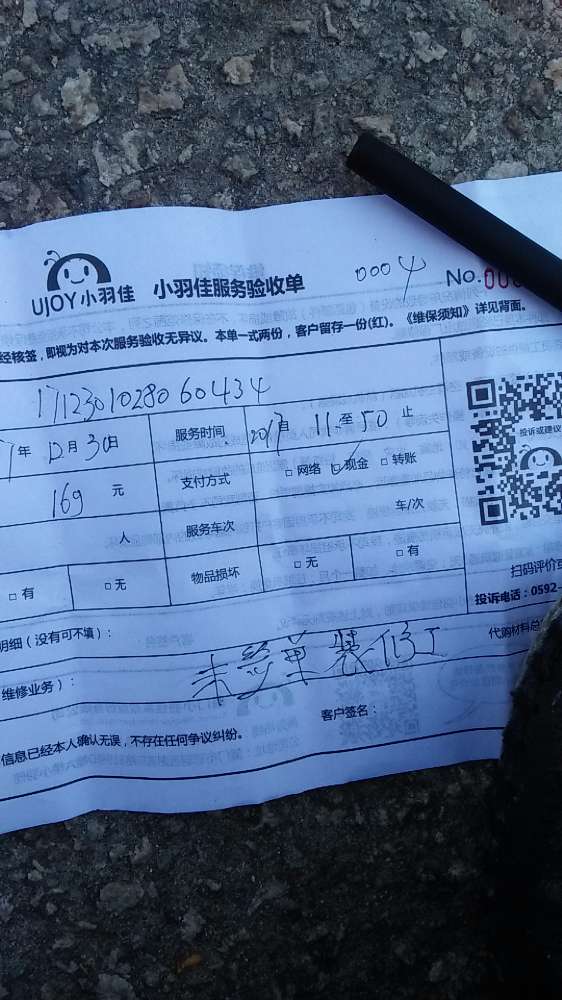 UJOY小羽佳 小羽佳服务验收单 0004 No.00
经核签，即视为对本次服务验收无异议。本单一式两份，客户留存一份(红)。《维保须知》详见背面。
1712301028060434
年12月30日 服务时间 11至50止
169元 支付方式 □网络 ☑现金 □转账
人 服务车次 车/次
□有 □无 物品损坏 □无 □有
投诉或建议
扫码评价或
投诉电话：0592-
明细（没有可不填）： 代购材料总
维修业务）：
装修工
客户签名：
信息已经本人确认无误，不存在任何争议纠纷。